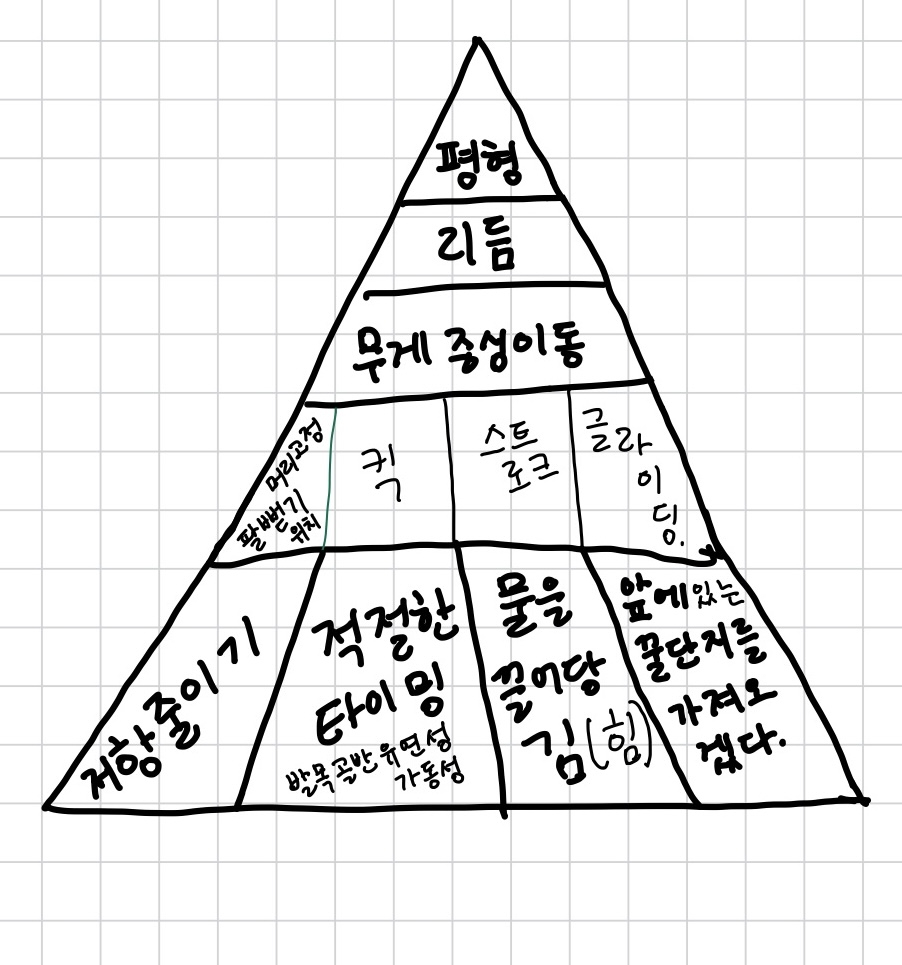 평형
리듬
무게 중심이동
머리고정
팔뻗기
위치
킥
스트
로크
글라
이
딩.
저항줄이기
적절한
타이밍
발목골반 유연성
가동성
물을
끌어당
김(힘)
앞에있는
꿀단지를
가져오
겠다.